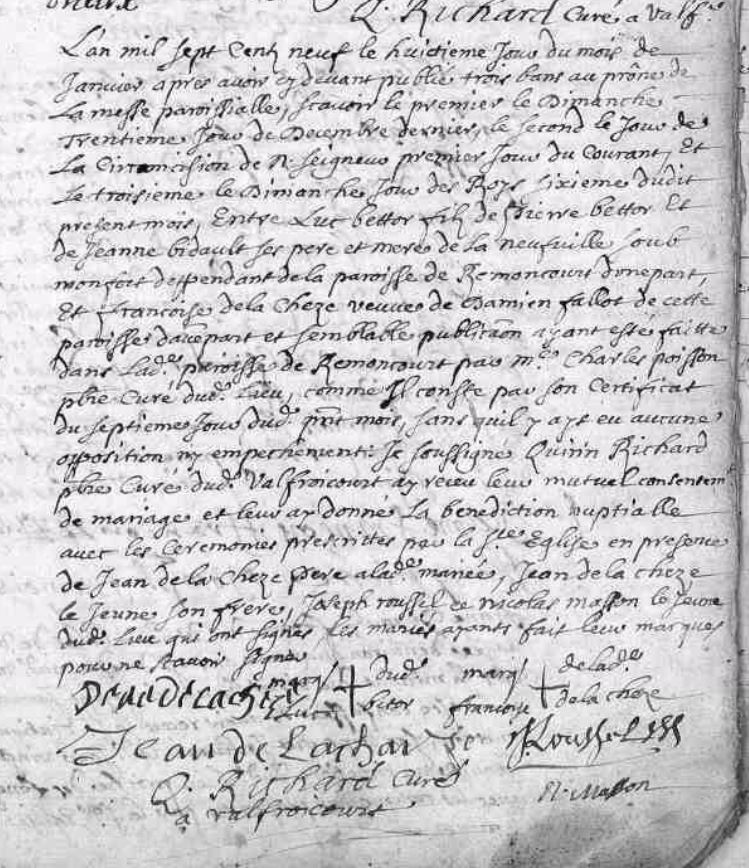 Q. Richard Curé a Valf.
L'an mil sept Centz neuf le huictieme Jour du mois de
Janvier apres avoir cy devant publié trois bans au prône de
La messe paroissialle, scavoir le premier le Dimanche
Trentieme Jour de Decembre dernier, le second le Jour de
La Circoncision de N. Seigneur premier Jour du Courant, Et
Le troisieme le Dimanche Jour des Roys sixieme dudit
present mois, Entre Luc bettor filz de Pierre bettor Et
de Jeanne bidault ses pere et mere de la neufville soub
monfort deppendant de la paroisse de Remoncourt d'une part,
Et francoise de la Cheze veuve de Damien fallot de cette
paroisse d'autre part et semblable publicaõn ayant esté faitte
dans Lad.e paroisse de Remoncourt par m.re Charles poisson
pbre Curé dud. Lieu, comme Il conste par son Certificat
du septieme Jour dud. pnt mois, sans quil y ayt eu aucune
opposition ny empechement: Je soussigné Quirin Richard
pbre Curé dud. Valfroicourt ay receu leur mutuel consentem.t
de mariage et leur ay donné La benediction nuptialle
avec les Ceremonies prescrittes par la s.te Eglise en presence
de Jean de la Cheze pere a lad.e mariée, Jean de la cheze
le Jeune son frere, Joseph roussel et nicolas masson le Jeune
dud. Lieu qui ont signés les mariés ayants fait leur marques
pour ne scavoir signer
marq dud. marq de lad.e
Luc + bitor francoise + de la cheze
Jean de Lachai J Roussel
Q. Richard Curé N. Masson
a valfroicourt